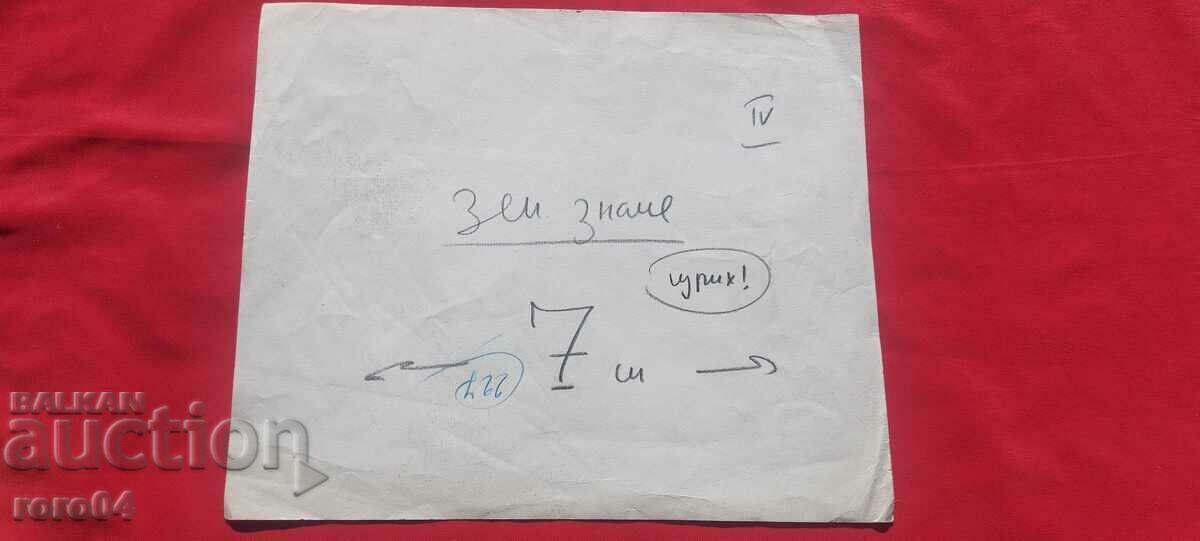 IV
Зем знаме
цурих!
7 ш
227
BALKAN
auction
roro04